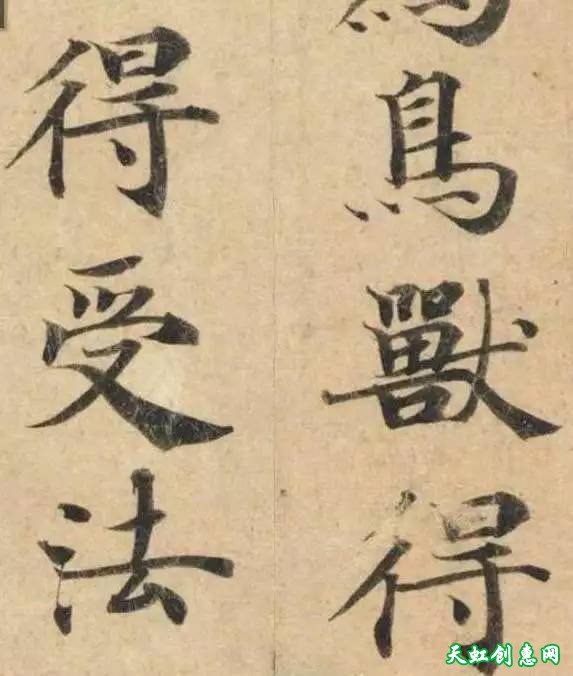 鳥獸得
得受法
天虹创惠网